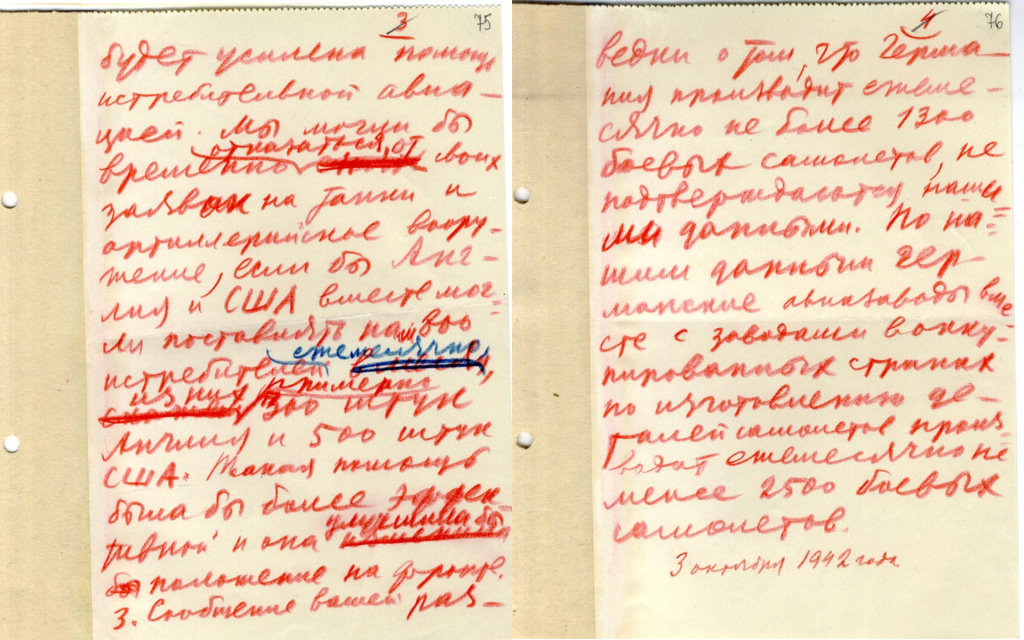 3
75
будет усилена помощь
истребительной авиа-
цией. Мы могли бы
отказаться от
временно своих
заявок на танки и
артиллерийское воору-
жение, если бы Анг-
лия и США вместе мог-
ли поставлять нам 800
ежемесячно,
истребителей
из них примерно
300 штук
Англия и 500 штук
США. Такая помощь
была бы более эффек
улучшила бы
тивной и она
положение на фронте.
3. Сообщение вашей раз-
4
76
ведки о том, что Герма-
ния производит ежеме-
сячно не более 1300
боевых самолетов, не
подтверждаются наши
ми данными. По на-
шим данным гер-
манские авиазаводы вме
сте с заводами в окку-
пированных странах
по изготовлению де-
талей самолетов произ-
водят ежемесячно не
менее 2500 боевых
самолетов.
3 октября 1942 года